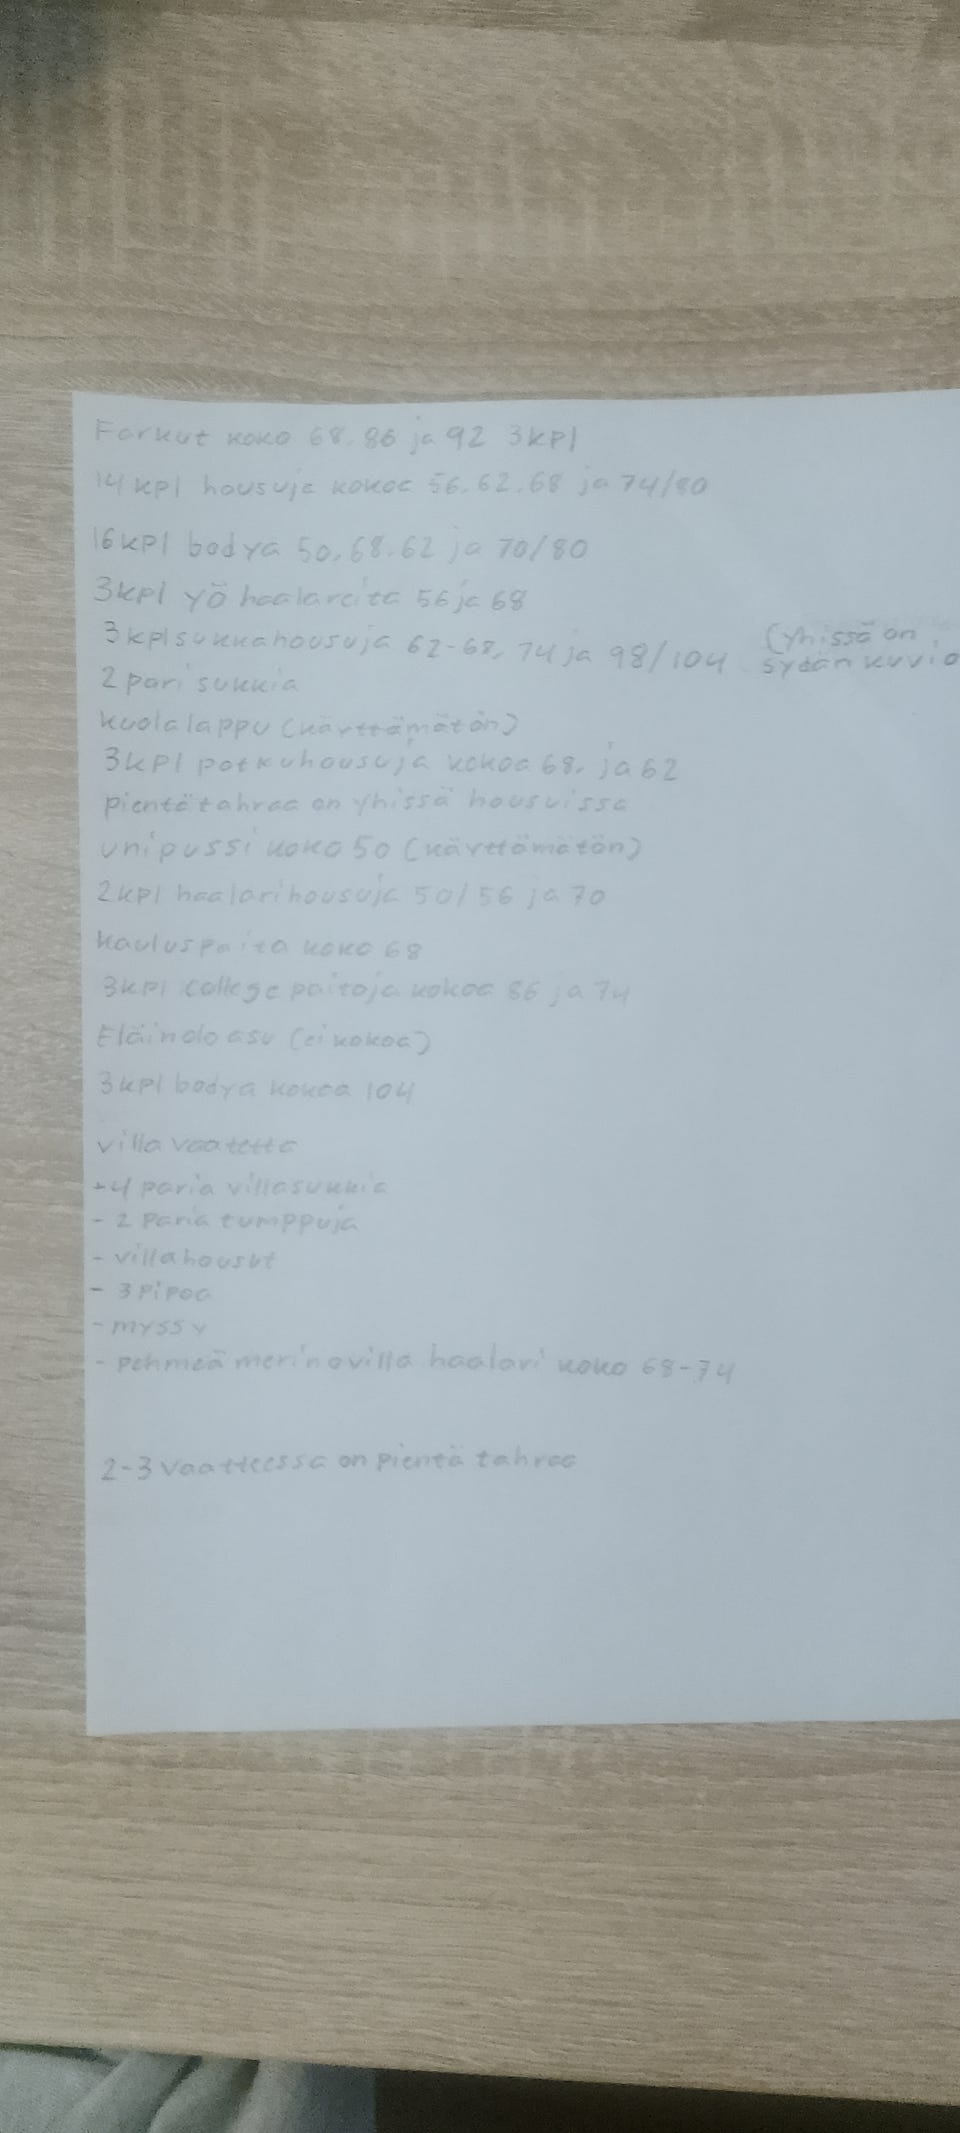 Farkut koko 68.86 ja 92 3kpl
14 kpl housuja kokoa 56.62.68 ja 74/80
16kpl bodya 50.68.62 ja 70/80
3kpl yö haalareita 56 ja 68
3kpl sukkahousuja 62-68, 74 ja 98/104 (yhissä on sydän kuvio
2 pari sukkia
kuolalappu (kärttämätön)
3kpl potkuhousuja kokoa 68. ja 62
pientä tahraa on yhissä housuissa
unipussi koko 50 (kärttämätön)
2kpl haalarihousuja 50/56 ja 70
kauluspaita koko 68
3kpl college paitoja kokoa 86 ja 74
Eläinolo asu (ei kokoa)
3kpl bodya kokoa 104
villa vaatetta
-4 paria villasukkia
- 2 paria tumppuja
- villahousut
- 3 pipoa
- myssy
- pehmeä merinovilla haalari koko 68-74
2-3 vaatteessa on pientä tahraa